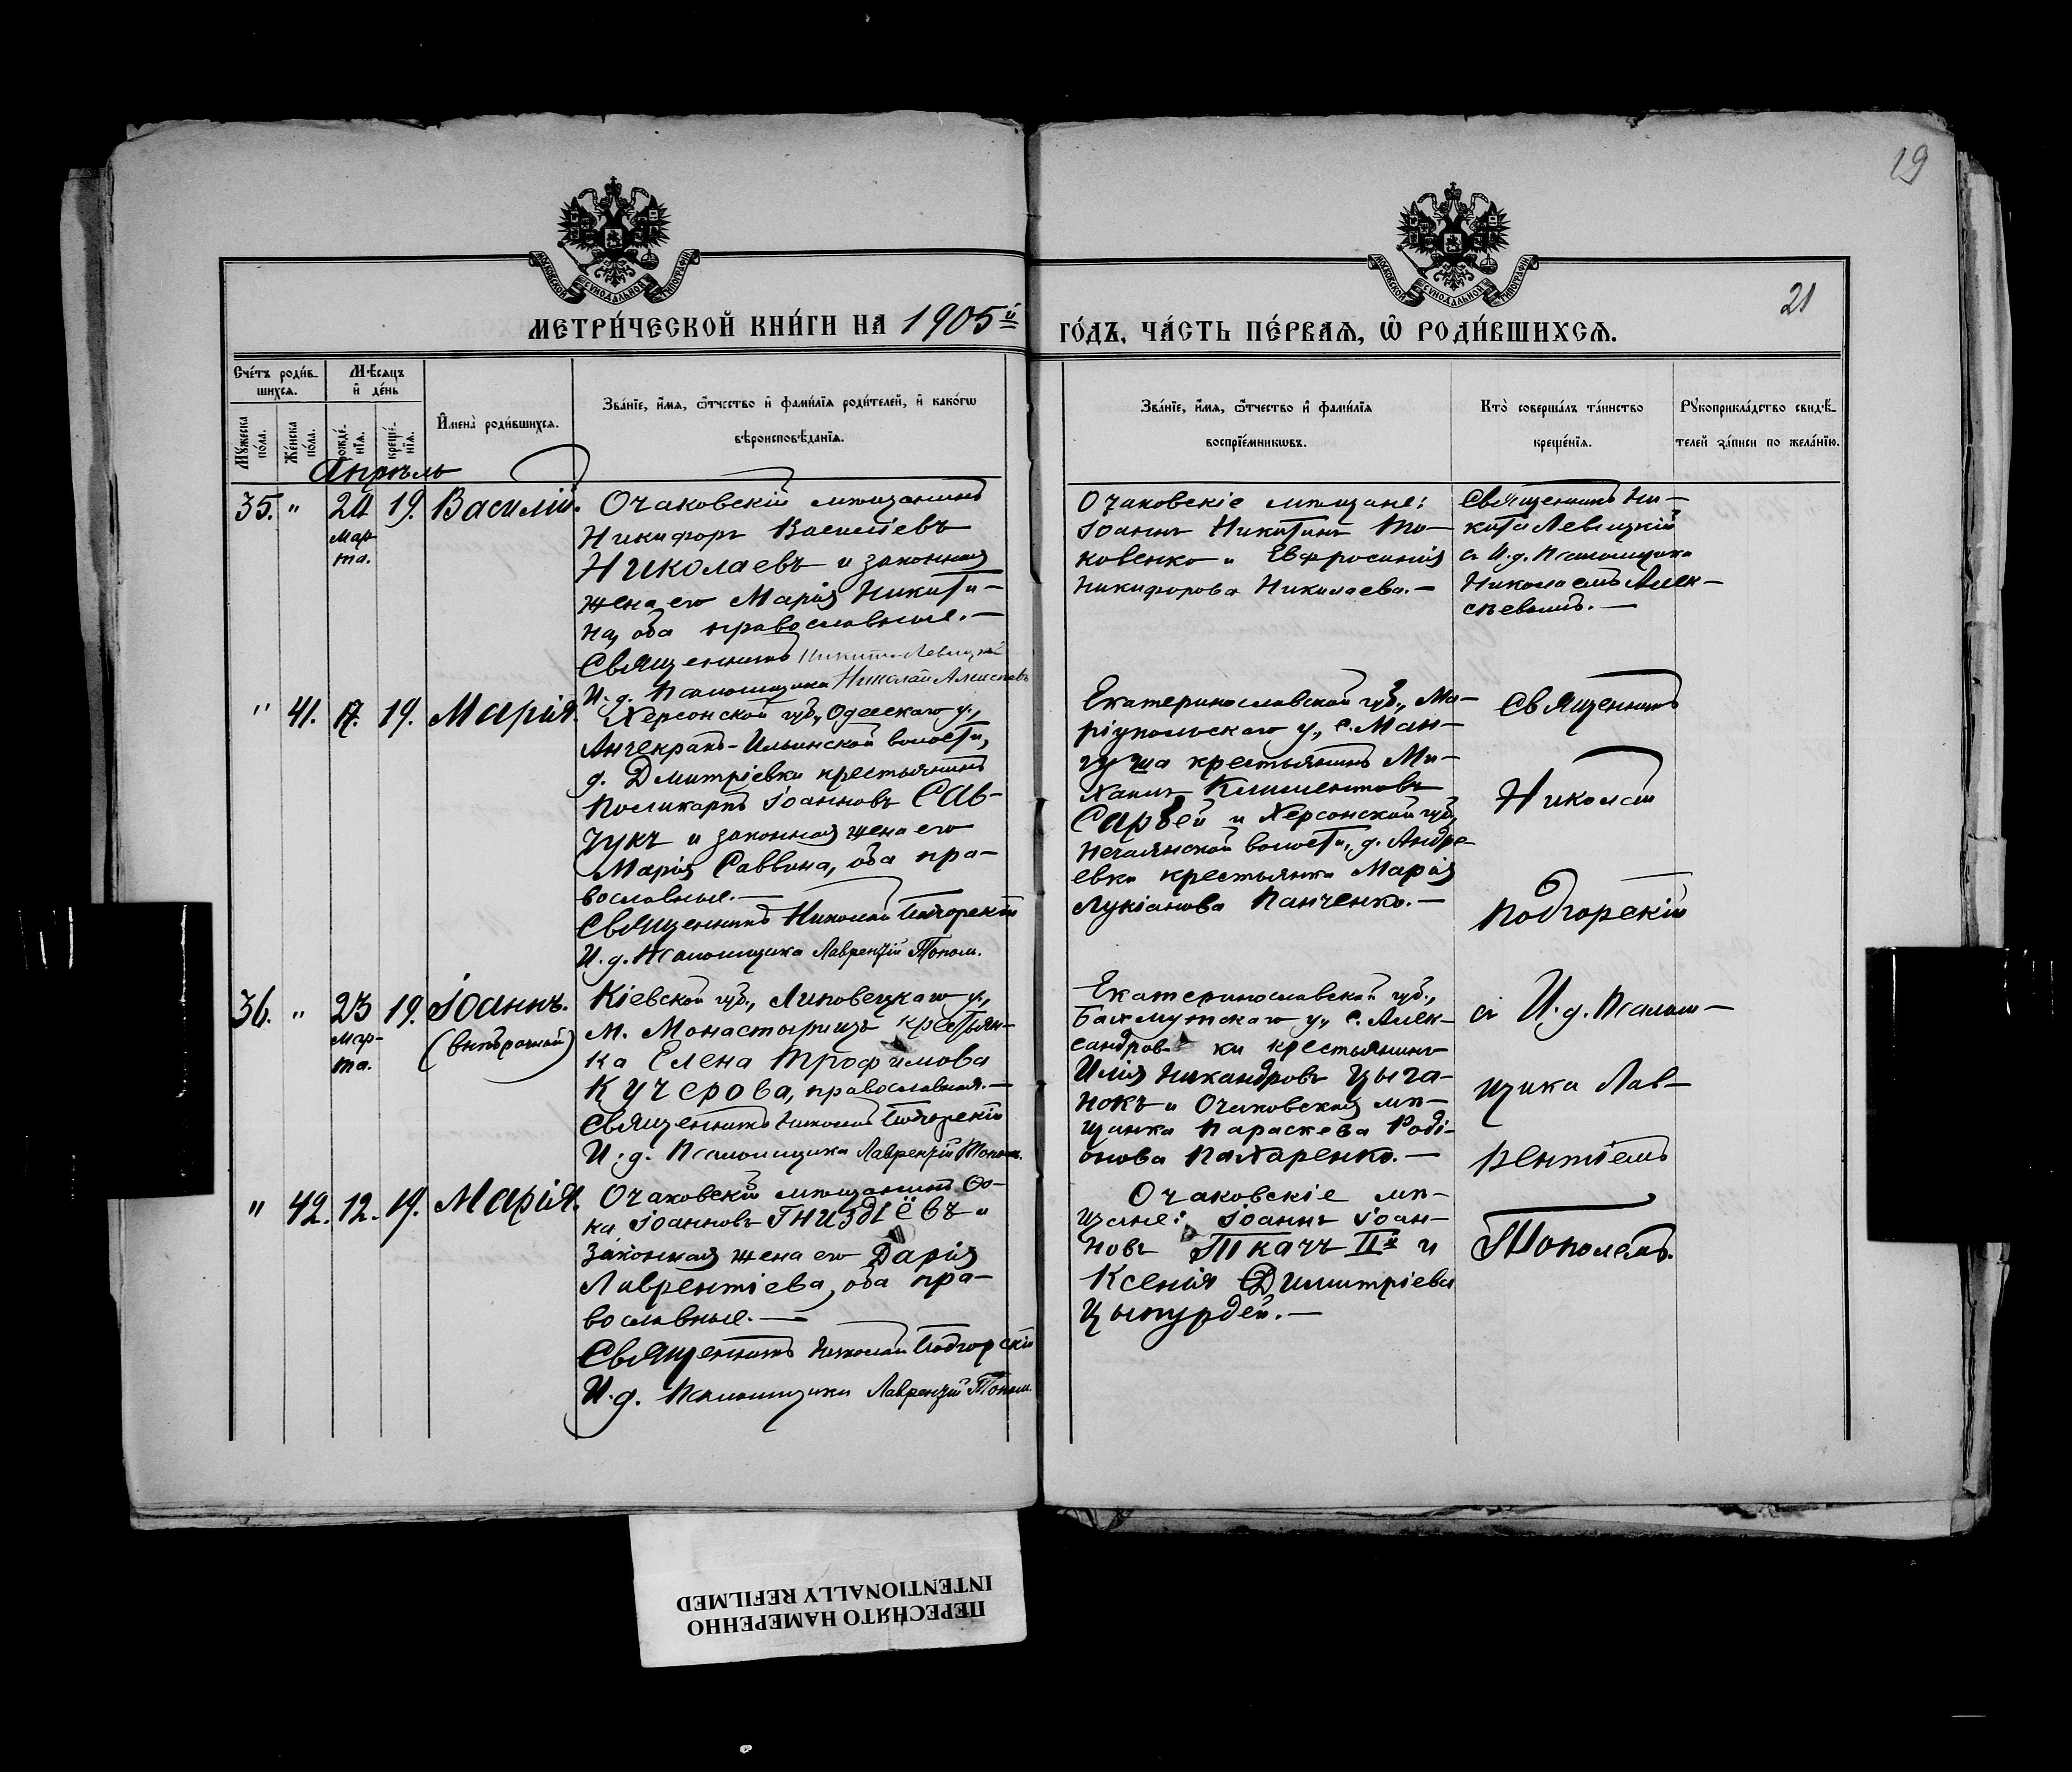 19
МОСКОВСКОЙ СѴНОДАЛЬНОЙ ТИПОГРАФІИ
МОСКОВСКОЙ СѴНОДАЛЬНОЙ ТИПОГРАФІИ
21
МЕТРИ́ЧЕСКОЙ КНИ́ГИ НА 1905й
ГО́ДЪ, ЧА́СТЬ ПЕ́РВАЯ, Ѡ РОДИ́ВШИХСЯ.
Сче́тъ роди́в-
шихся.
Мѣ́сяцъ
и҆ де́нь
Мꙋ́жеска по́ла.
Же́нска по́ла.
рожде́-нїя.
креще́-нїя.
И҆мена̀ роди́вшихся.
Зва́нїе, и҆́мя, ѻ҆́тчество и҆ фами́лїя роди́телей, и҆ како́гѡ
вѣроисповѣ́данїя.
Зва́нїе, и҆́мя, ѻ҆́тчество и҆ фами́лїя
воспрїе́мникѡвъ.
Кто̀ соверша́лъ та́инство
креще́нїя.
Рꙋкоприкла́дство свидѣ́-
телей за́писи по жела́нїю.
Апрѣль
35. " 24 19. Василій.
Мар-
та.
Очаковскій мѣщанинъ
Никифоръ Василіевъ
Николаевъ и законная
жена его Марія Никити-
на, оба православные.-
Священникъ Никита Левицкій
И. д. Псаломщика Николай Алексѣевъ
Очаковскіе мѣщане:
Іоаннъ Никитинъ То-
ковенко и Евфросинія
Никифорова Николаева.-
Священникъ Ни-
кита Левицкій
съ И. д. Псаломщика
Николаемъ Алек-
сѣевымъ.-
" 41. 17. 19. Марія.
Херсонской губ., Одесскаго у.,
Анчекракъ-Ильинской волости,
д. Дмитріевки крестьянинъ
Поликарпъ Іоанновъ Сав-
чукъ и законная жена его
Марія Саввина, оба пра-
вославные.-
Священникъ Николай Подгорскій
И. д. Псаломщика Лаврентій Топол.
Екатеринославской губ., Ма-
ріупольскаго у., с. Ман-
гуша крестьянинъ Ми-
хаилъ Климентовъ
Сарбей и Херсонской губ.,
Нечаянской волости, д. Андре-
евки крестьянка Марія
Лукіанова Панченко.-
Священникъ
Николай
Подгорскій
36. " 23 19. Іоаннъ.
Мар-
та.
(внѣбрачный)
Кіевской губ., Липовецкаго у.,
м. Монастырищъ крестьян-
ка Елена Трофимова
Кучерова, православная.-
Священникъ Николай Подгорскій
И. д. Псаломщика Лаврентій Топол.
Екатеринославской губ.,
Бахмутскаго у., с. Алек-
сандровки крестьянинъ
Илія Никандровъ Цыга-
нокъ и Очаковская мѣ-
щанка Параскева Роді-
онова Пахаренко.-
съ И. д. Псалом-
щика Лав-
рентіемъ
" 42. 12. 19. Марія.
Очаковскій мѣщанинъ Ѳо-
ка Іоанновъ Гниздіёвъ и
законная жена его Дарія
Лаврентіева, оба пра-
вославные.-
Священникъ Николай Подгорскій
И. д. Псаломщика Лаврентій Топол.
Очаковскіе мѣ-
щане: Іоаннъ Іоан-
новъ Ткачъ IIй и
Ксенія Димитріева
Цыпурдей.-
Тополемъ.
ПЕРЕСНЯТО НАМЕРЕННО
INTENTIONALLY REFILMED